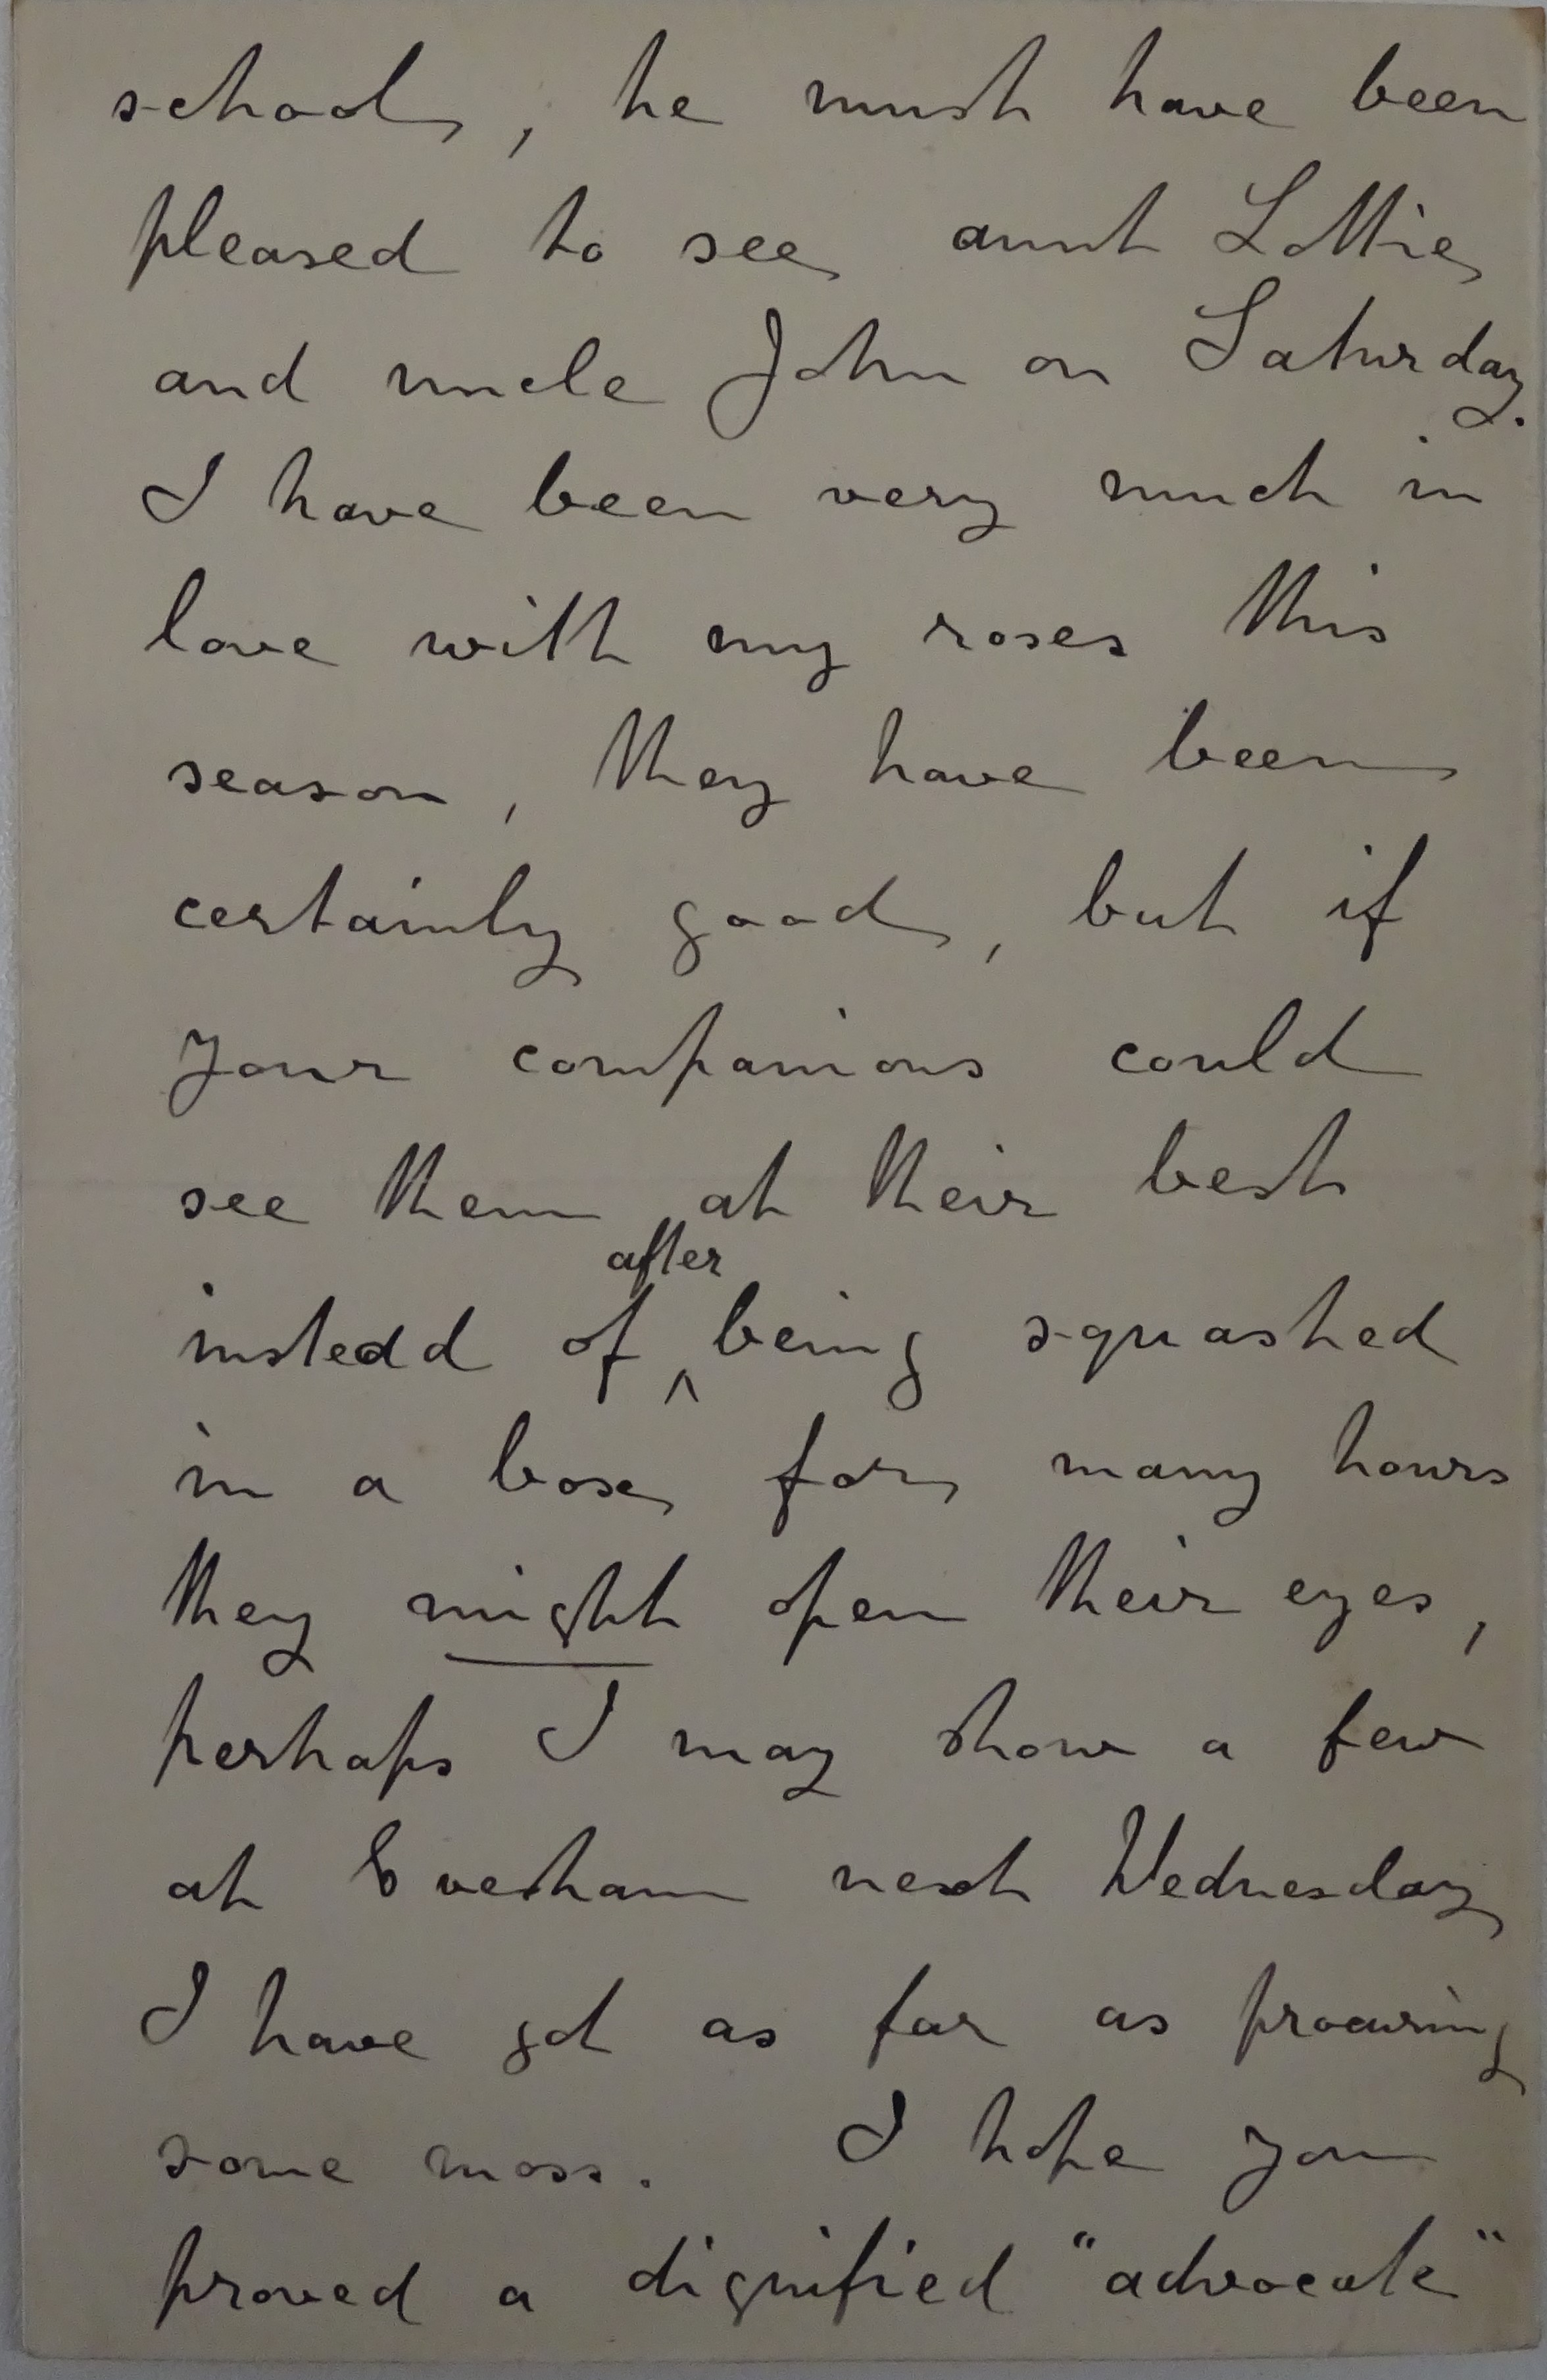 school, he must have been
pleased to see aunt Lottie
and uncle John on Saturday.
I have been very much in
love with my roses this
season, they have been
certainly good, but if
your companions could
see them at their best
after
instead of ^ being squashed
in a box for many hours
they might open their eyes,
perhaps I may show a few
at Evesham next Wednesday
I have got as far as procuring
some moss. I hope you
proved a dignified "advocate"